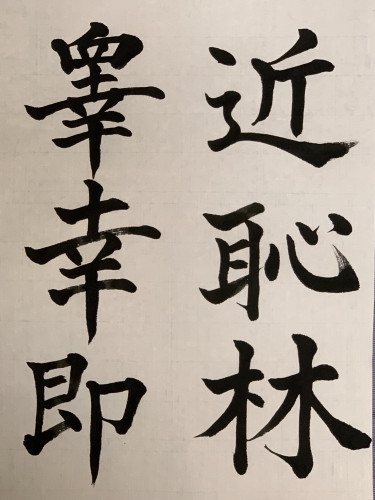 近恥林
睾幸即